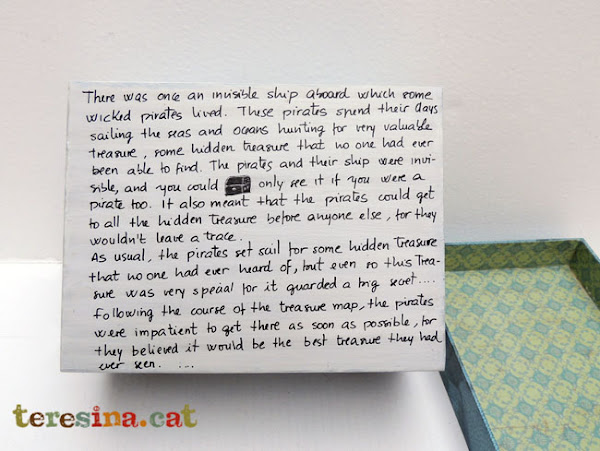 There was once an invisible ship aboard which some
wicked pirates lived. These pirates spend their days
sailing the seas and oceans hunting for very valuable
treasure, some hidden treasure that no one had ever
been able to find. The pirates and their ship were invi-
sible, and you could only see it if you were a
pirate too. It also meant that the pirates could get
to all the hidden treasure before anyone else, for they
wouldn't leave a trace.
As usual, the pirates set sail for some hidden treasure
that no one had ever heard of, but even so this trea-
sure was very special for it guarded a big secret....
Following the course of the treasure map, the pirates
were impatient to get there as soon as possible, for
they believed it would be the best treasure they had
ever seen. ....
teresina.cat